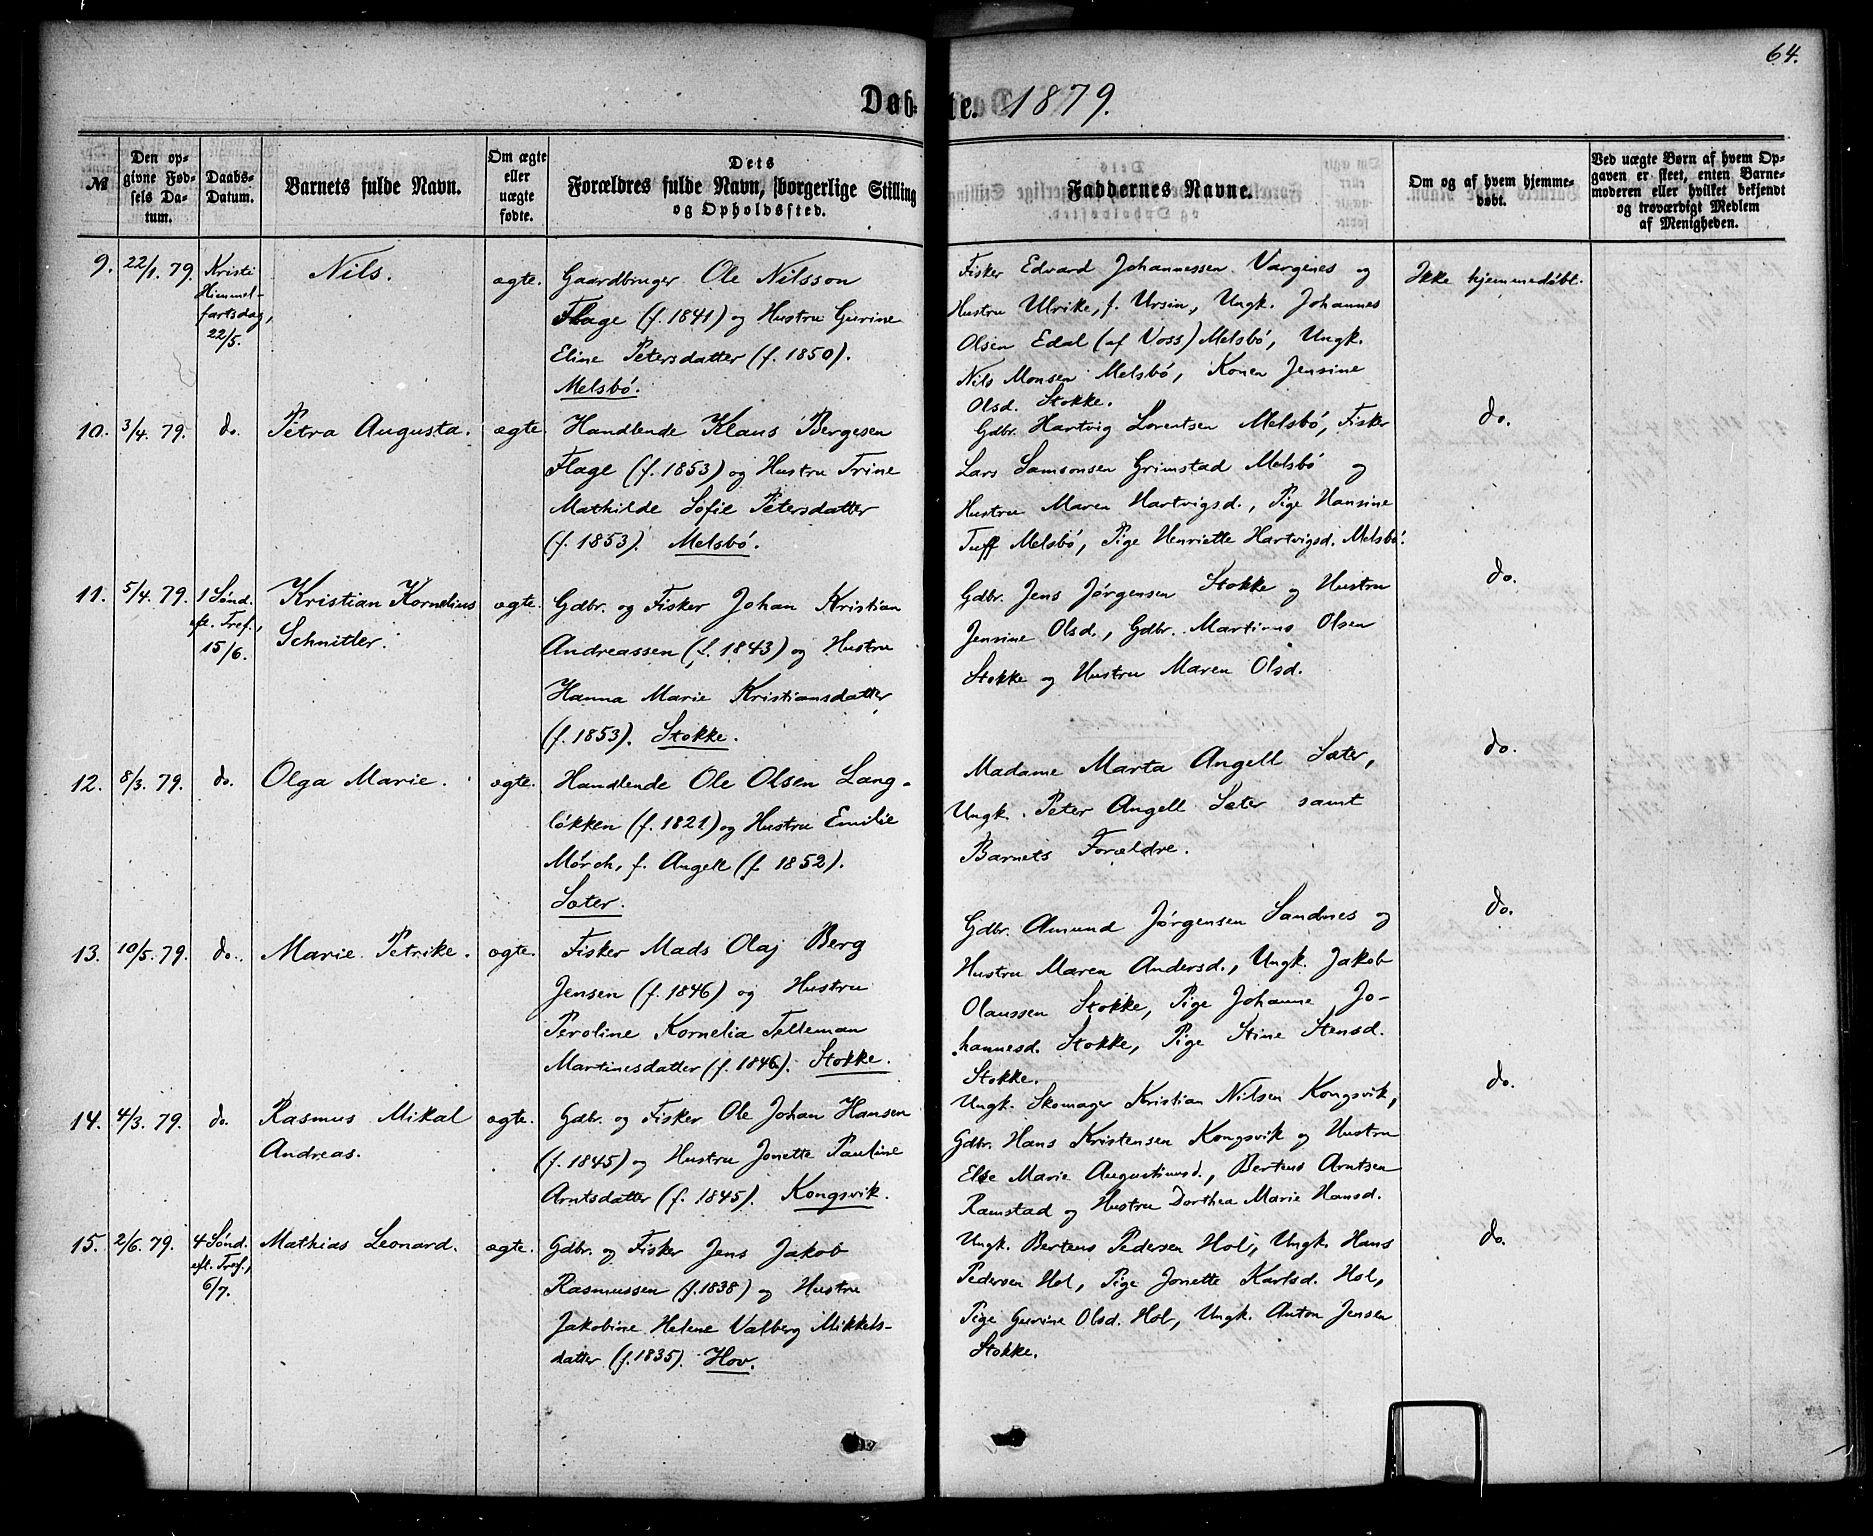 64.
Døbte. 1879.
№
Den opgivne Fødsels Datum.
Daabs-Datum.
Barnets fulde Navn.
Om ægte eller uægte fødte.
Dets Forældres fulde Navn, borgerlige Stilling og Opholdssted.
Faddernes Navne.
Om og af hvem hjemmedøbt.
Ved uægte Børn af hvem Opgaven er skeet, enten Barnemoderen eller hvilket bekjendt og troværdigt Medlem af Menigheden.
9. 22/1. 79. Kristi Himmelfartsdag, 22/5. Nils. ægte.
Gaardbruger Ole Nilsson
Flage (f. 1841) og Hustru Gurine
Eline Petersdatter (f. 1850).
Melsbö.
Fisker Edvard Johannessen Vargenes og
Hustru Ulrike, f. Ursin, Ungk. Johannes
Olsen Edal (af Voss) Melsbö, Ungk.
Nils Monsen Melsbö, Konen Jensine
Olsd. Stokke.
Ikke hjemmedöbt.
10. 3/4. 79. do. Petra Augusta. ægte.
Handlende Klaus Bergesen
Flage (f. 1853) og Hustru Trine
Mathilde Sofie Petersdatter
(f. 1853). Melsbö.
Gdbr. Hartvig Lorentsen Melsbö, Fisker
Lars Samsonsen Grimstad Melsbö og
Hustru Maren Hartvigsd., Pige Hansine
Tuff Melsbö, Pige Henriette Hartvigsd. Melsbö.
do.
11. 5/4. 79. 1 Sönd. eft. Tref., 15/6. Kristian Kornelius
Schnitler. ægte.
Gdbr. og Fisker Johan Kristian
Andreassen (f. 1843) og Hustru
Hanna Marie Kristiansdatter
(f. 1853). Stokke.
Gdbr. Jens Jörgensen Stokke og Hustru
Jensine Olsd., Gdbr. Martinus Olsen
Stokke og Hustru Maren Olsd.
do.
12. 8/3. 79. do. Olga Marie. ægte.
Handlende Ole Olsen Lang-
lökken (f. 1821) og Hustru Emilie
Mörch, f. Angell (f. 1852).
Sæter.
Madame Marta Angell Sæter,
Ungk. Peter Angell Sæter samt
Barnets Forældre.
do.
13. 10/5. 79. do. Marie Petrike. ægte.
Fisker Mads Olaj Berg
Jensen (f. 1846) og Hustru
Peroline Kornelia Telleman
Martinesdatter (f. 1846). Stokke.
Gdbr. Amund Jörgensen Sandnes og
Hustru Maren Andersd., Ungk. Jakob
Olaussen Stokke, Pige Johanne Jo-
hannesd. Stokke, Pige Stine Stensd.
Stokke.
do.
14. 4/3. 79. do. Rasmus Mikal
Andreas. ægte.
Gdbr. og Fisker Ole Johan Hansen
(f. 1845) og Hustru Jonette Pauline
Arntsdatter (f. 1845). Kongsvik.
Ungk. Skomager Kristian Nilsen Kongsvik,
Gdbr. Hans Kristensen Kongsvik og Hustru
Else Marie Augustinusd., Bertens Arntsen
Ramstad og Hustru Dorthea Marie Hansd.
do.
15. 2/6. 79. 4 Sönd. eft. Tref., 6/7. Mathias Leonard. ægte.
Gdbr. og Fisker Jens Jakob
Rasmussen (f. 1838) og Hustru
Jakobine Helene Valberg Mikkels-
datter (f. 1835). Hov.
Ungk. Bertens Pedersen Hol, Ungk. Hans
Pedersen Hol, Pige Jonette Karlsd. Hol,
Pige Gurine Olsd. Hol, Ungk. Anton Jensen
Stokke.
do.